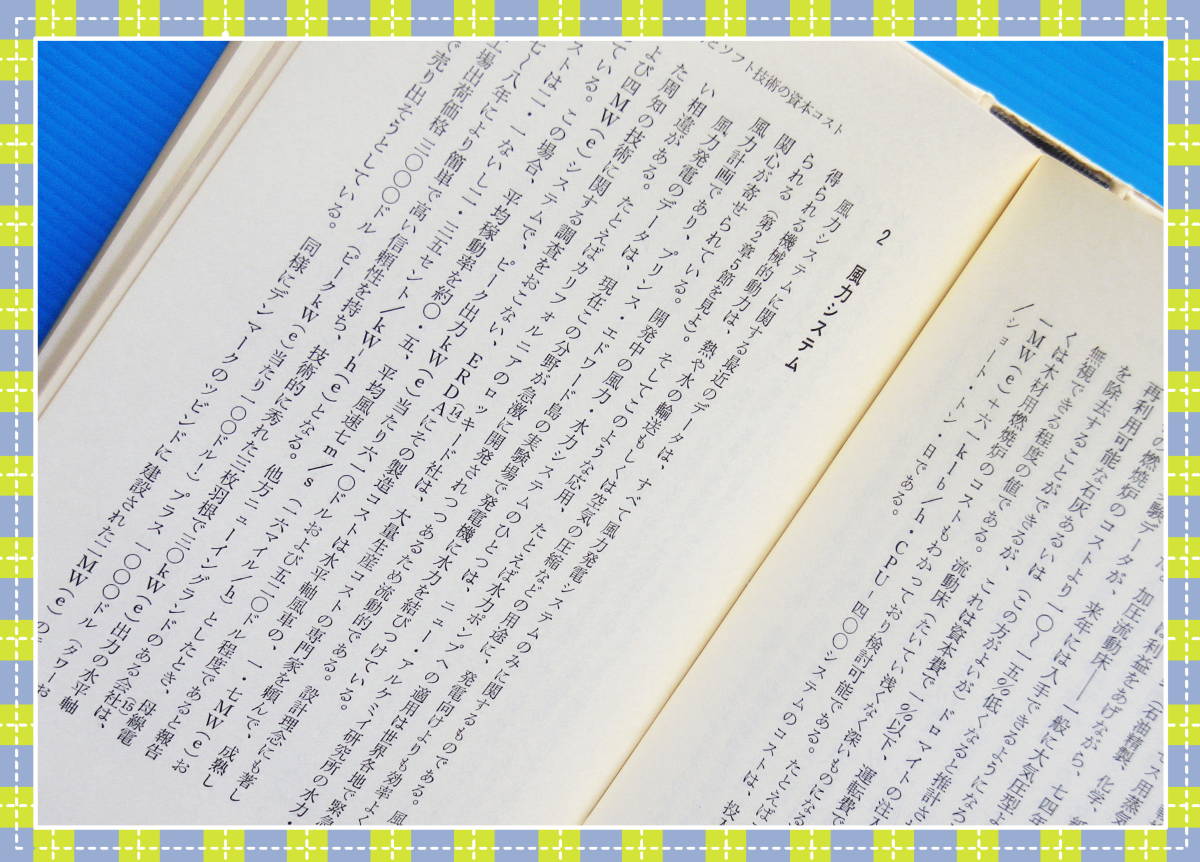 モス用蒸気
(石油精製、化学、紙
は利益をあげながら、七四年
加圧流動床——一般に大気圧型よ
験データが、来年には入手できるようになっ
の燃焼炉のコストより一〇〜一五%低くなると推計され
再利用可能な石灰あるいは(この方がよいが)ドロマイトの注入
を除去することができるが、これは資本費で一%以下、運転費で
無視できる程度の値である。流動床(たいてい浅くなく深いものになる
くは木材用燃焼炉のコストもわかっており検討可能である。たとえば
一MW(e)十六一klb/h・CPU-四〇〇システムのコストは、投入
/ショート・トン・日である。
とソフト技術の資本コスト
2 風力システム
風力システムに関する最近のデータは、すべて風力発電システムのみに関するものである。風
得られる機械的動力は、熱や水の輸送もしくは空気の圧縮などの用途に、発電向けよりも効率よく
られる(第2章5節を見よ)。そしてこのような応用、たとえば水力ポンプへの適用は世界各地で緊急
関心が寄せられている。開発中の風力・水力システムのひとつは、ニュー・アルケミイ研究所の水力・
風力計画であり、プリンス・エドワード島の実験場で発電機に水力を結びつけている。
風力発電のデータは、現在この分野が急激に開発されつつあるため流動的である。設計理念にも著し
い相違がある。たとえばカリフォルニアのロッキード社は、水平軸風車の専門家を頼んで、成熟し
た周知の技術に関する調査をおこない、ERDA(14)に 一・七MW(e)お
よび四MW(e)システムで、ピーク出力kW(e)当たり六一〇ドルおよび五二〇ドル程度であると報告
ている。この場合、平均稼動率を約〇・五、平均風速七m/s(一六マイル/h)としたとき、母線電
ストは二・一ないし二・三五セント/kW-h(e)となる。他方ニューイングランドのある会社(15)は、
〜八年により簡単で高い信頼性を持ち、技術的に秀れた三枚羽根で二〇kW(e)出力の水平軸
工場出荷価格二〇〇〇ドル(ピークkW(e)当たり一〇〇ドル!)プラス一〇〇〇ドル(タワーお
で売り出そうとしている。同様にデンマークのツビンドに建設された二MW(e)